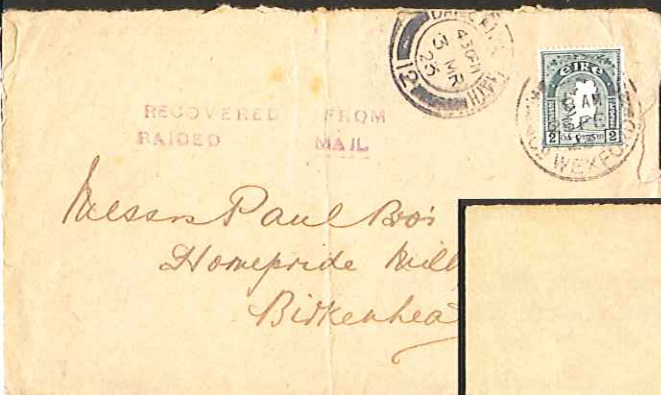 4 30 PM
3 MR
25
12
EIRE
2 2
AM
WEXFORD
RECOVERED FROM
RAIDED MAIL
Messrs Paul Bros
Homepride Mill
Birkenhea